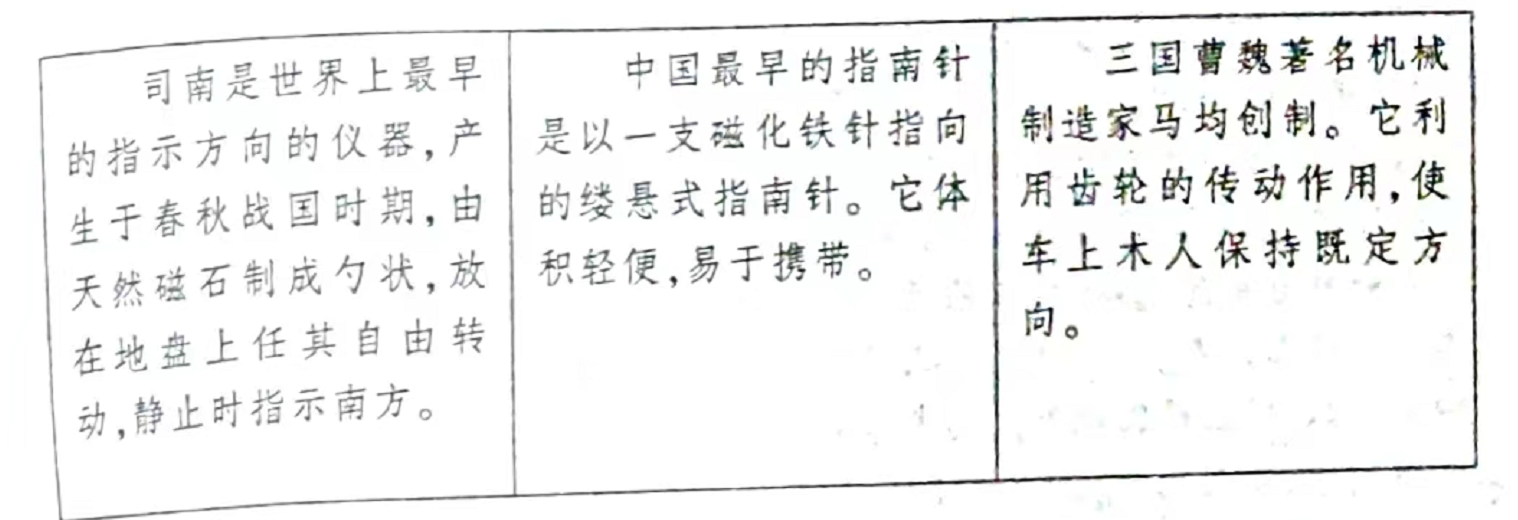 司南是世界上最早
的指示方向的仪器,产
生于春秋战国时期,由
天然磁石制成勺状,放
在地盘上任其自由转
动,静止时指示南方。
中国最早的指南针
是以一支磁化铁针指向
的缕悬式指南针。它体
积轻便,易于携带。
三国曹魏著名机械
制造家马均创制。它利
用齿轮的传动作用,使
车上木人保持既定方
向。